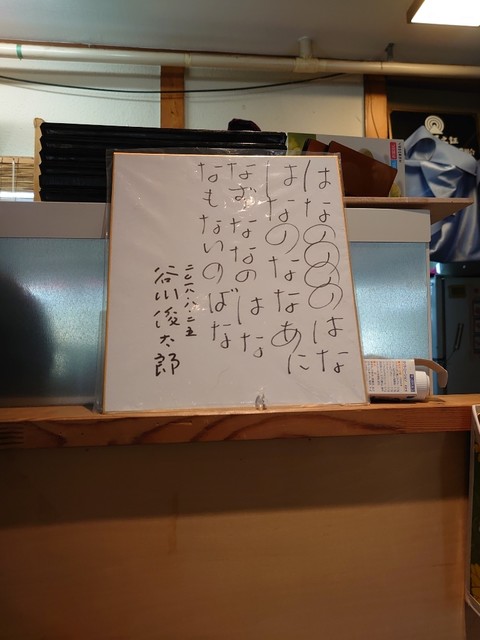 はなののののはな
はなのななあに
なずななのはな
なもないのばな
二〇一八・八・二五
谷川俊太郎